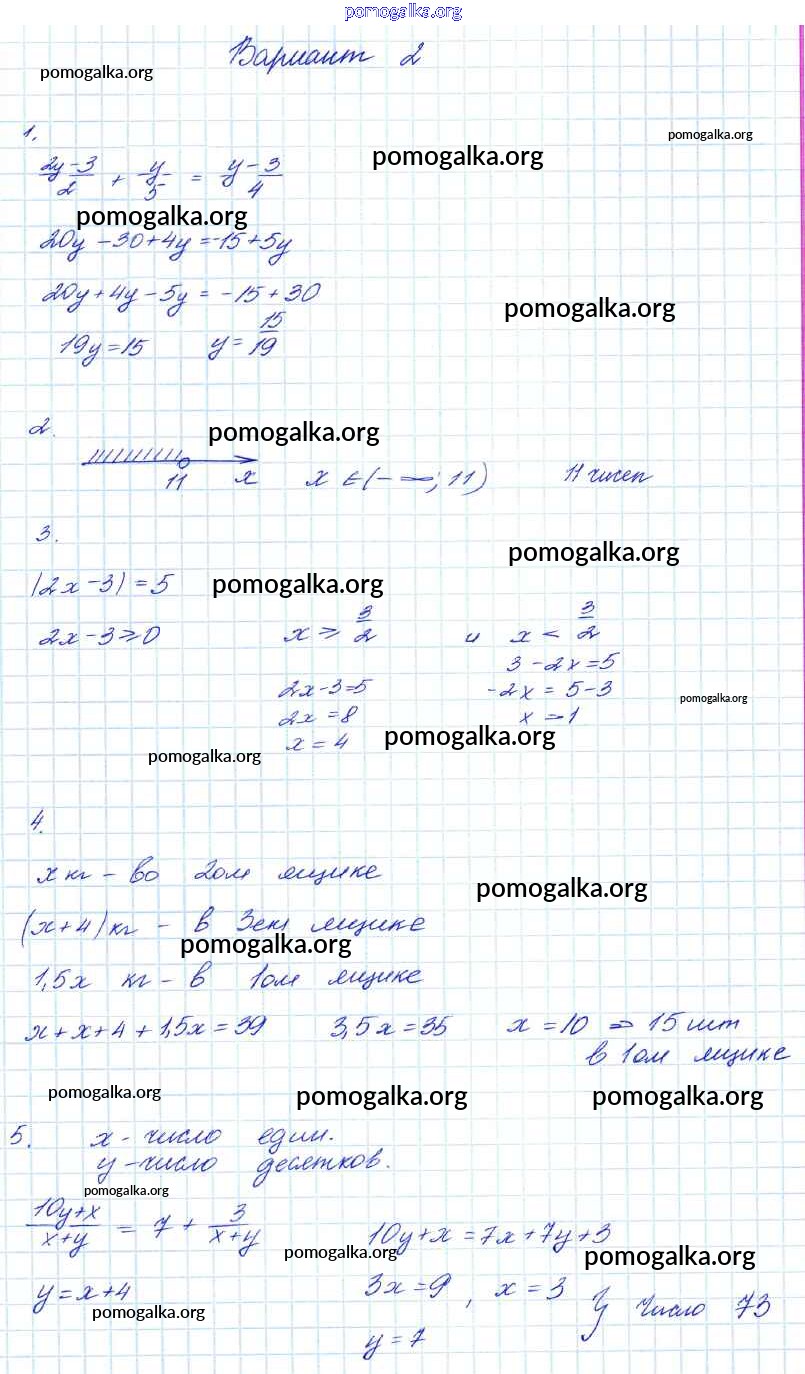 pomogalka.org
Вариант 2
pomogalka.org
pomogalka.org
1.
pomogalka.org
(2y-3)/2 + y/5 = (y-3)/4
pomogalka.org
20y - 30 + 4y = -15 + 5y
20y + 4y - 5y = -15 + 30
pomogalka.org
19y = 15 y = 15/19
2.
pomogalka.org
11 x x ∈ (-∞; 11) 11 чисел
3.
pomogalka.org
|2x - 3| = 5
pomogalka.org
2x - 3 ≥ 0 x ≥ 3/2 и x < 3/2
3 - 2x = 5
2x - 3 = 5 -2x = 5 - 3
pomogalka.org
2x = 8 x = -1
x = 4
pomogalka.org
pomogalka.org
4.
x кг - во 2ом ящике
pomogalka.org
(x+4) кг - в 3ем ящике
pomogalka.org
1,5x кг - в 1ом ящике
x + x + 4 + 1,5x = 39 3,5x = 35 x = 10 ⇒ 15 шт
в 1ом ящике
pomogalka.org pomogalka.org pomogalka.org
5. x - число един.
y - число десятков.
pomogalka.org
(10y+x)/(x+y) = 7 + 3/(x+y) 10y + x = 7x + 7y + 3
pomogalka.org pomogalka.org
y = x + 4 3x = 9, x = 3 } число 73
pomogalka.org
y = 7